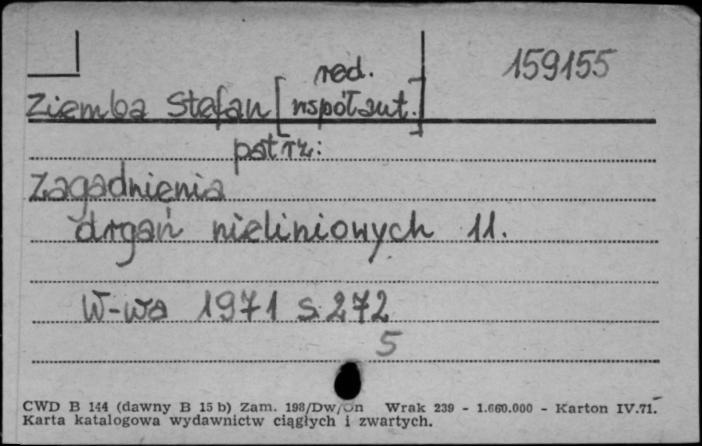 159155
red.
Ziemba Stefan [współaut.]
patrz:
Zagadnienia
drgań nieliniowych 11.
W-wa 1971 s. 272
5
CWD B 144 (dawny B 15 b) Zam. 198/Dw/On Wrak 239 - 1.660.000 - Karton IV.71.
Karta katalogowa wydawnictw ciągłych i zwartych.